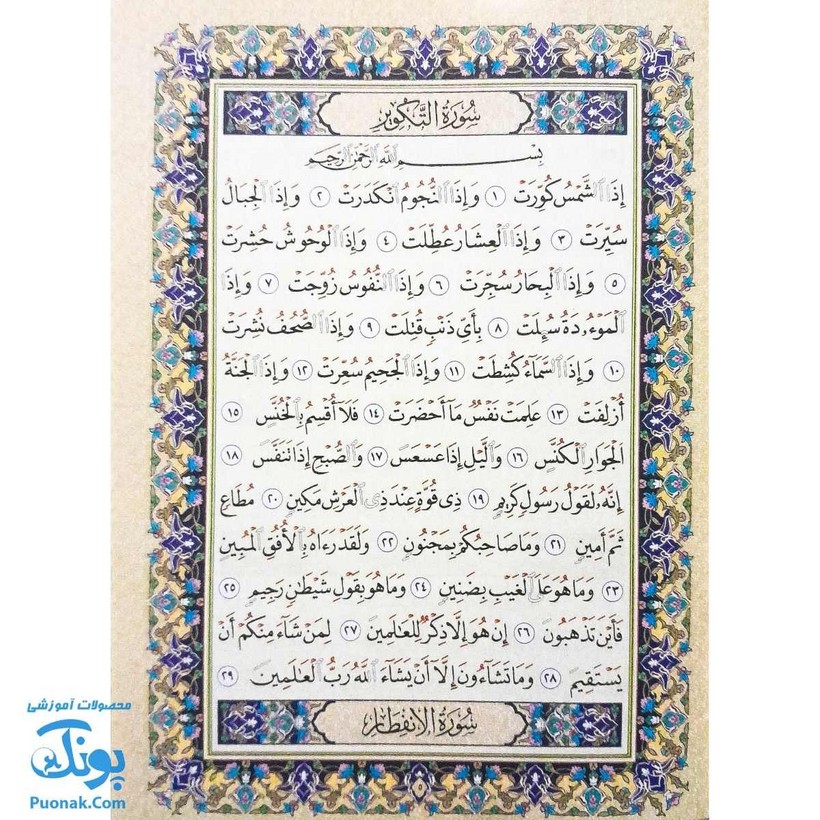 سُورَةُ التَّكْوِيرِ
بِسْمِ اللَّهِ الرَّحْمَٰنِ الرَّحِيمِ
إِذَا ٱلشَّمْسُ كُوِّرَتْ ١ وَإِذَا ٱلنُّجُومُ ٱنْكَدَرَتْ ٢ وَإِذَا ٱلْجِبَالُ
سُيِّرَتْ ٣ وَإِذَا ٱلْعِشَارُ عُطِّلَتْ ٤ وَإِذَا ٱلْوُحُوشُ حُشِرَتْ
٥ وَإِذَا ٱلْبِحَارُ سُجِّرَتْ ٦ وَإِذَا ٱلنُّفُوسُ زُوِّجَتْ ٧ وَإِذَا
ٱلْمَوْءُۥدَةُ سُئِلَتْ ٨ بِأَىِّ ذَنْبٍ قُتِلَتْ ٩ وَإِذَا ٱلصُّحُفُ نُشِرَتْ
١٠ وَإِذَا ٱلسَّمَآءُ كُشِطَتْ ١١ وَإِذَا ٱلْجَحِيمُ سُعِّرَتْ ١٢ وَإِذَا ٱلْجَنَّةُ
أُزْلِفَتْ ١٣ عَلِمَتْ نَفْسٌ مَآ أَحْضَرَتْ ١٤ فَلَآ أُقْسِمُ بِٱلْخُنَّسِ ١٥
ٱلْجَوَارِ ٱلْكُنَّسِ ١٦ وَٱلَّيْلِ إِذَا عَسْعَسَ ١٧ وَٱلصُّبْحِ إِذَا تَنَفَّسَ ١٨
إِنَّهُۥ لَقَوْلُ رَسُولٍ كَرِيمٍ ١٩ ذِى قُوَّةٍ عِنْدَ ذِى ٱلْعَرْشِ مَكِينٍ ٢٠ مُطَاعٍ
ثَمَّ أَمِينٍ ٢١ وَمَا صَاحِبُكُمْ بِمَجْنُونٍ ٢٢ وَلَقَدْ رَءَاهُ بِٱلْأُفُقِ ٱلْمُبِينِ
٢٣ وَمَا هُوَ عَلَى ٱلْغَيْبِ بِضَنِينٍ ٢٤ وَمَا هُوَ بِقَوْلِ شَيْطَٰنٍ رَجِيمٍ ٢٥
فَأَيْنَ تَذْهَبُونَ ٢٦ إِنْ هُوَ إِلَّا ذِكْرٌ لِلْعَالَمِينَ ٢٧ لِمَنْ شَآءَ مِنْكُمْ أَنْ
يَسْتَقِيمَ ٢٨ وَمَا تَشَآءُونَ إِلَّآ أَنْ يَشَآءَ ٱللَّهُ رَبُّ ٱلْعَالَمِينَ ٢٩
سُورَةُ الْإِنْفِطَارِ
٥
محصولات آموزشی
پونک
Puonak.Com